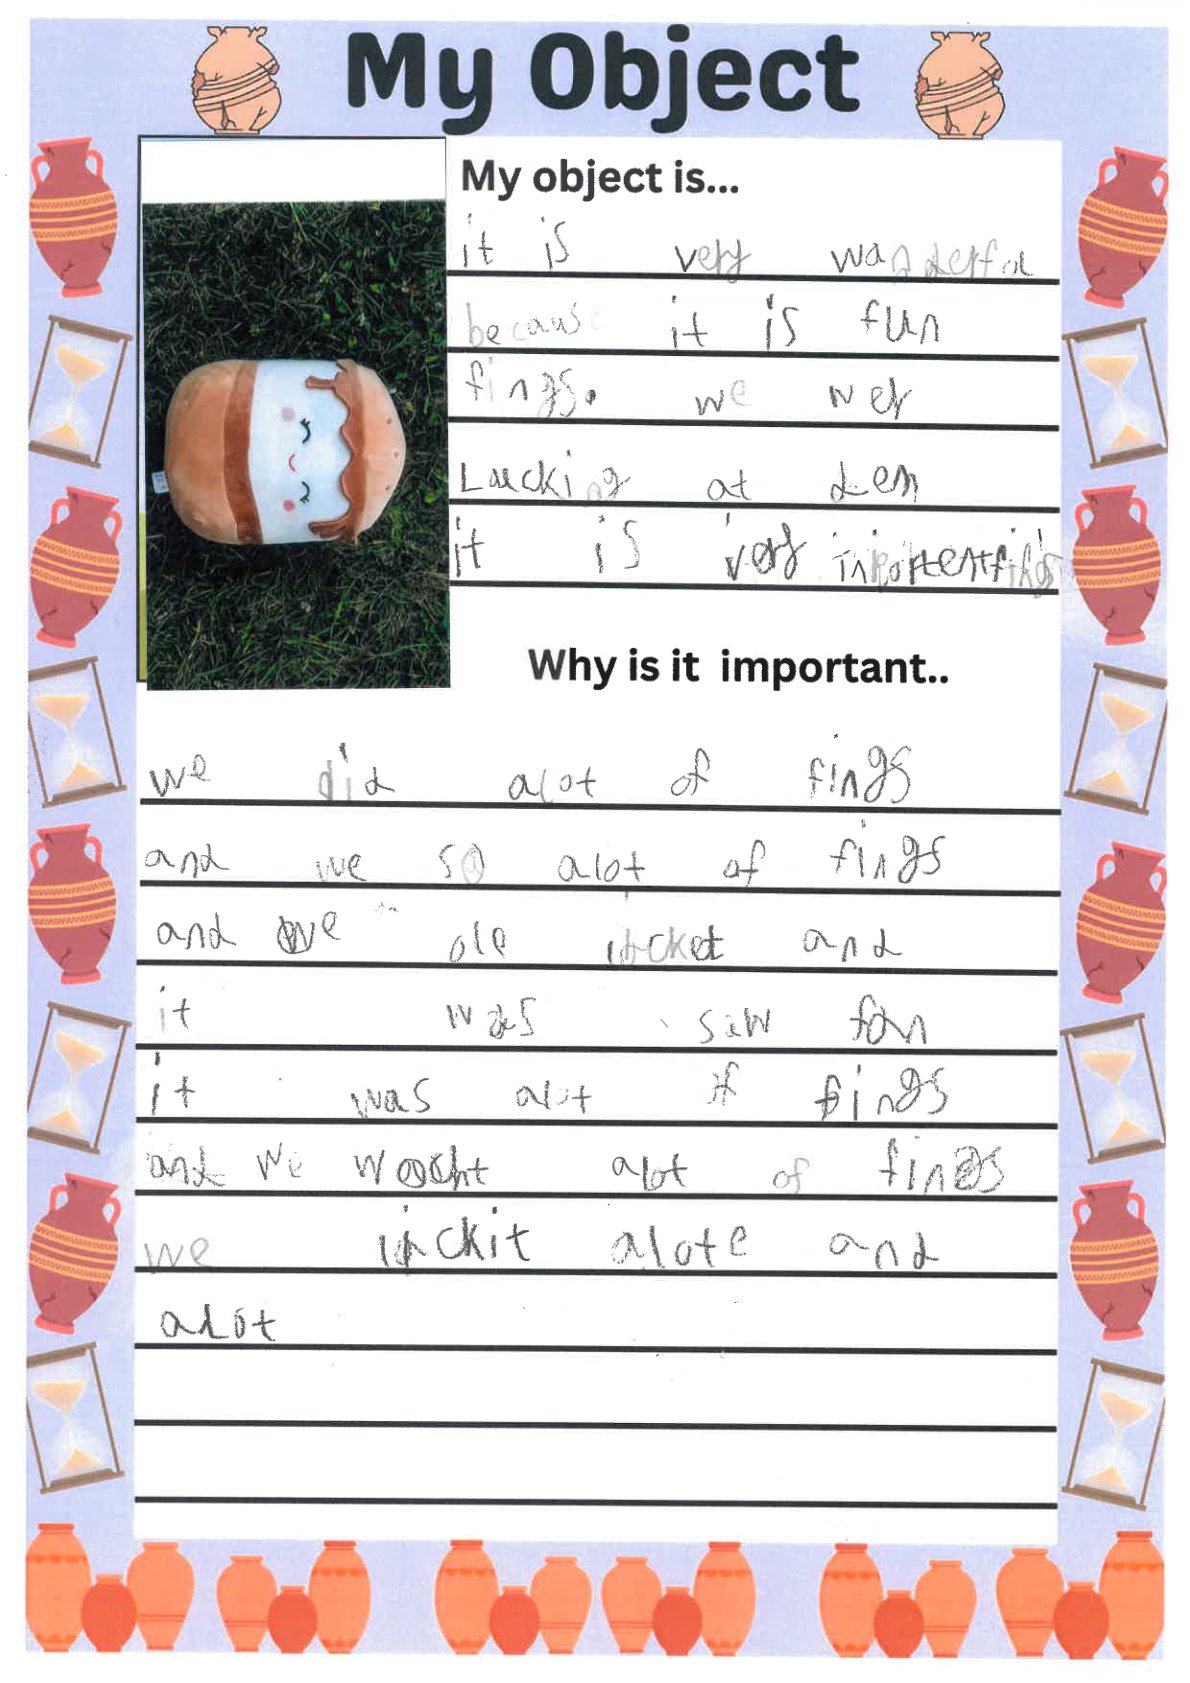 My Object
My object is...
it is very wanderfol
because it is fun
fings. we wer
Lucking at dem
it is very inportent fings
Why is it important..
we did alot of fings
and we so alot of fings
and we ole and
it was saw fon
it was alot if fings
and we alot of fings
we alote and
alot